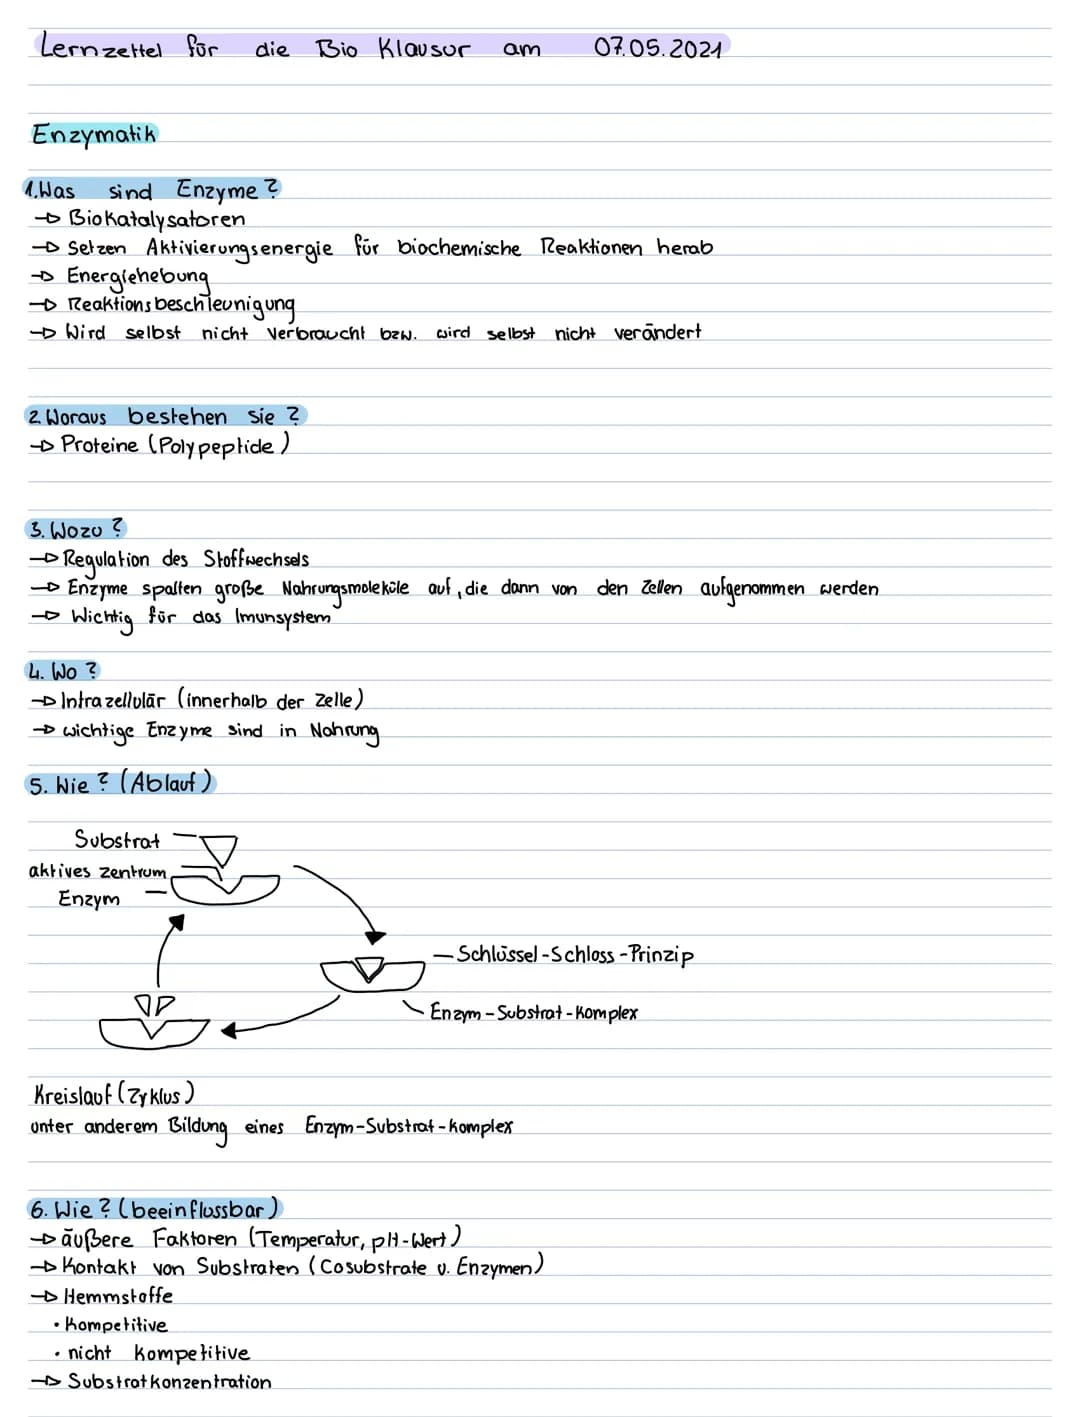 Lernzettel für die Bio Klausur am 07.05.2021
Enzymatik
1.Was sind Enzyme?
→ Biokatalysatoren
→ Setzen Aktivierungsenergie für biochemische Reaktionen herab
→ Energiehebung
→ Reaktionsbeschleunigung
→ Wird selbst nicht verbraucht bzw. wird selbst nicht verändert
2.Woraus bestehen Sie?
→ Proteine (Polypeptide)
3. Wozu?
→ Regulation des Stoffwechsels
→ Enzyme spalten große Nahrungsmoleküle auf, die dann von den Zellen aufgenommen werden
→ Wichtig für das Imunsystem
4. Wo?
→ Intrazellulär (innerhalb der Zelle)
→ wichtige Enzyme sind in Nahrung
5. Wie? (Ablauf)
Substrat
aktives Zentrum
Enzym
Schlüssel-Schloss-Prinzip
Enzym-Substrat-Komplex
Kreislauf (Zyklus)
unter anderem Bildung eines Enzym-Substrat-komplex
6. Wie? (beeinflussbar)
→ äußere Faktoren (Temperatur, pH-Wert)
→ Kontakt von Substraten (Cosubstrate u. Enzymen)
→ Hemmstoffe
• Kompetitive
• nicht kompetitive
→ Substratkonzentration